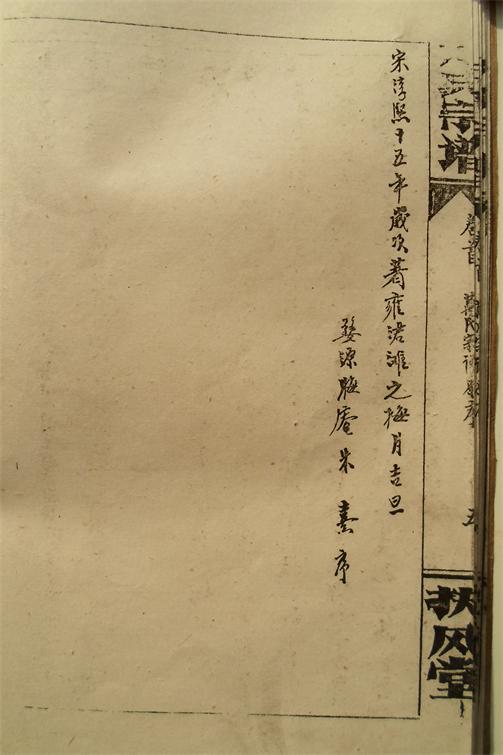 宋淳熙十五年歲次著雍涒灘之梅月吉旦
婺源晦庵朱熹序
氏宗譜
卷首
五
扶风堂